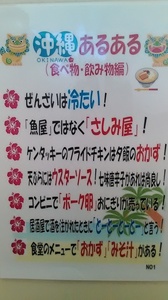 沖縄あるある
OKINAWA
(食べ物・飲み物編)
ぜんざいは冷たい!
「魚屋」ではなく「さしみ屋」!
ケンタッキーのフライドチキンは夕飯のおかず!
天ぷらにはウスターソース! 七味唐辛子があれば尚良し!
コンビニで「ポーク卵」おにぎりが売っている!
居酒屋で酒を注がれたときに と言う!
食堂のメニューで「おかず」「みそ汁」がある!
NO1